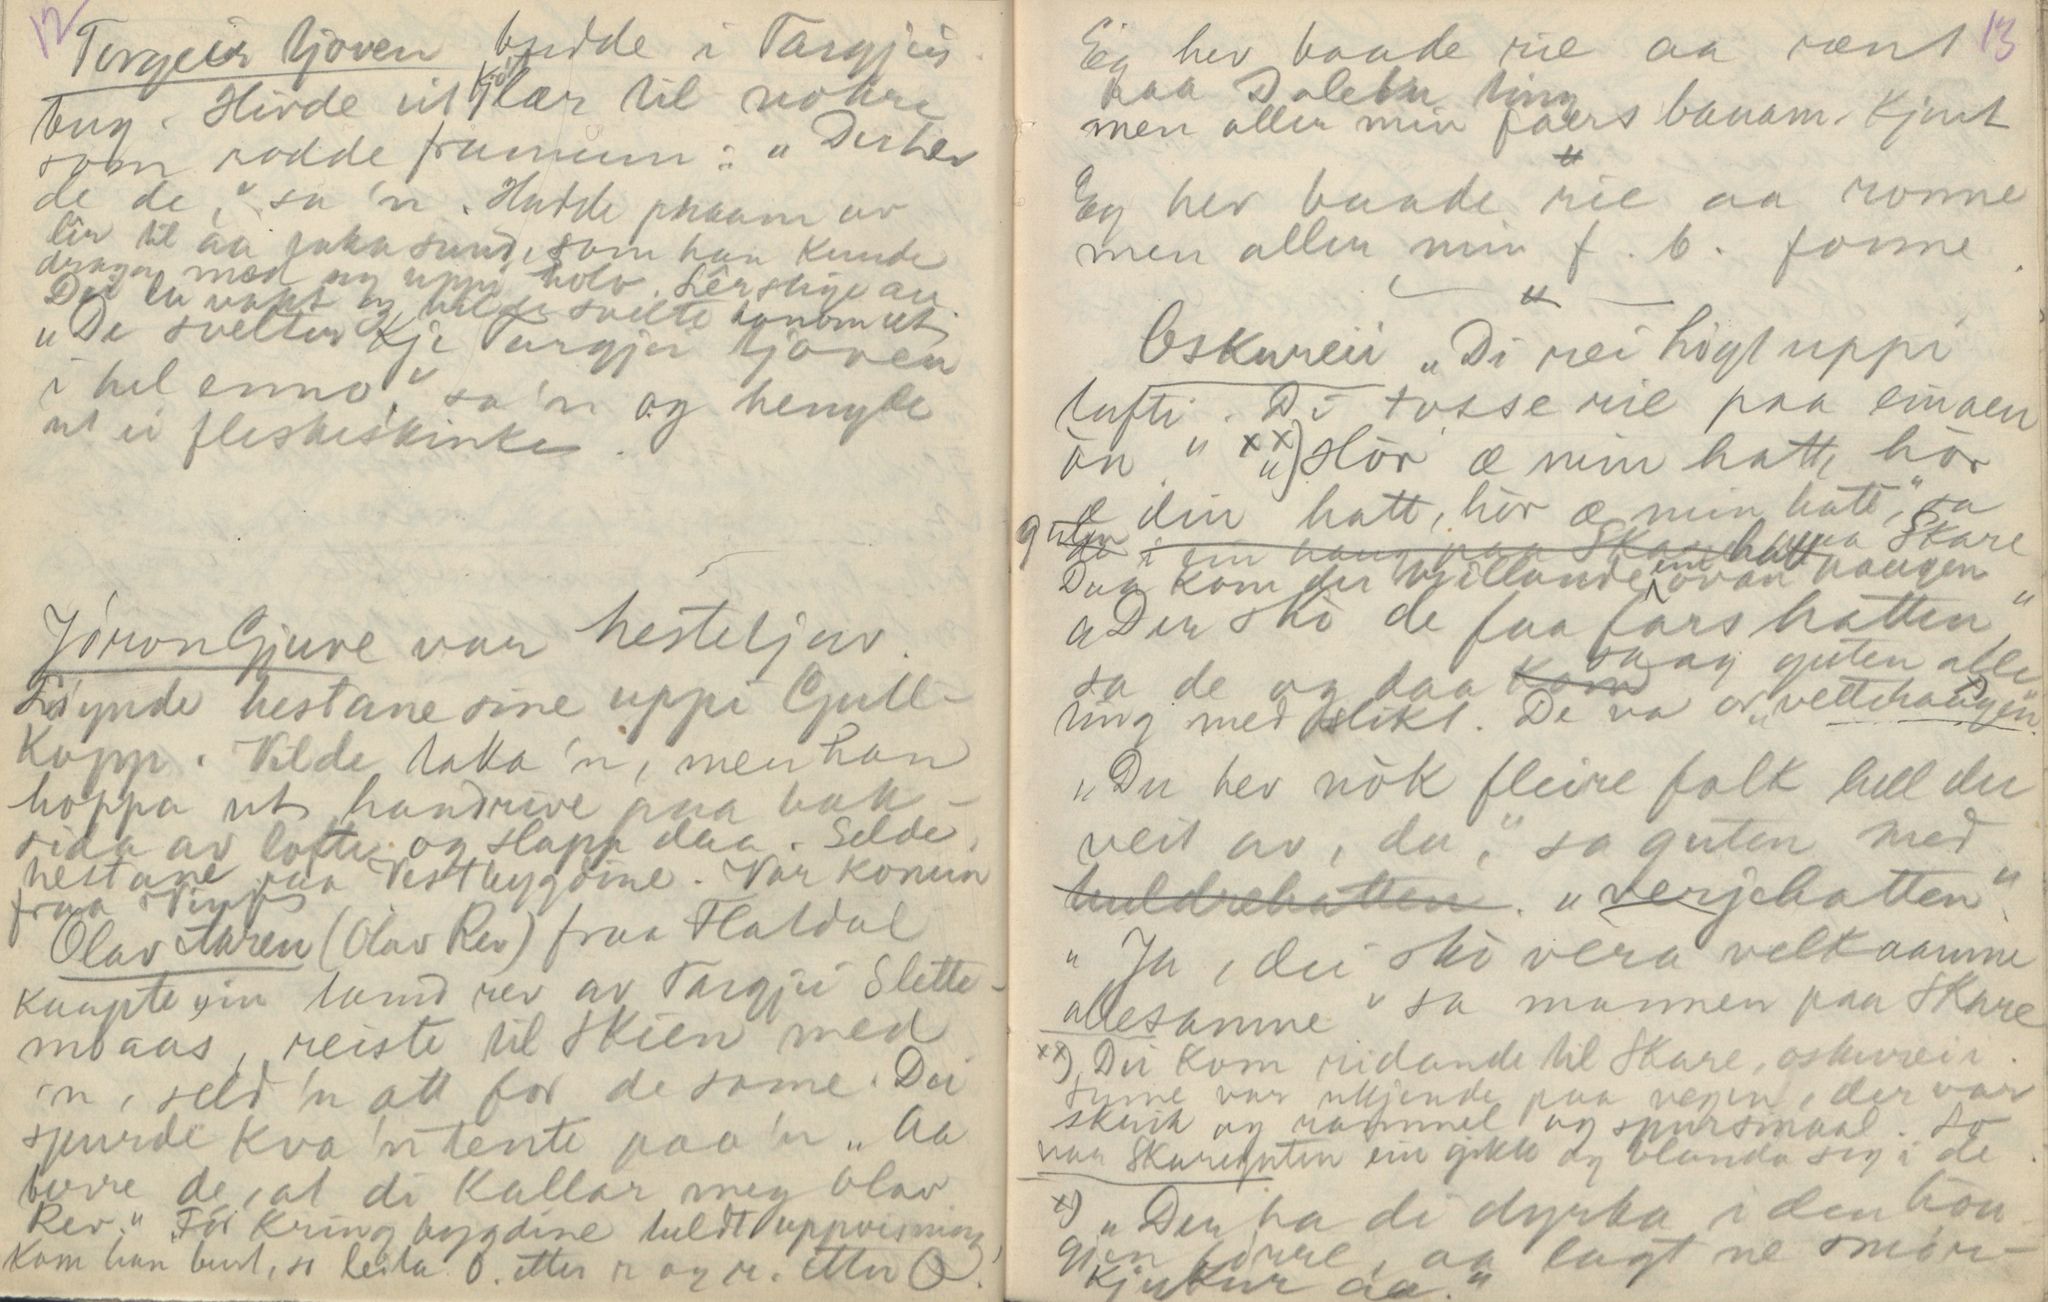 12
Torgeir tjoven budde i Targjeis
bug. Hivde ut kjötlær til nokre
som rodde framum: "Der hev
de de," sa 'n. Hadde praam av
lêr til aa taka sund, som han kunde
draga med seg uppi holo. Lêrstige au
Dei la vakt og vilde svelte honom ut.
"De svelter kje Targjei tjoven
i hel enno," sa 'n og hengde
ut ei fleskeskinke.
Jóron Gjuve var hestetjuv.
Löynde hestane sine uppi Gull-
kopp. Vilde taka 'n, men han
hoppa ut handrive paa bak-
sida av lofte og slapp daa. Selde
hestane paa Vestbygdine. Var komen
fraa
Olav Aaren (Olav Rev) fraa Flatdal
kaupte ein tamd rev av Targjei Slette-
moaas, reiste til Skien med
'n, seld 'n att for de same. Dei
spurde kva 'n tente paa 'n "Aa
berre de, at di kallar meg Olav
Rev." For kring bygdine heldt uppvisning,
kom han burt, so leita O. etter r og r. etter O.
13
Eg hev baade rie aa rent
paa Dalebu ting
men aller min faers banam. kjent
"
Eg hev baade rie aa ronne
men aller min f. b. fonne.
"
Oskureii "Di rei högt uppi
lufti. Di tosse rie paa einaen
ön." xx) "Hör æ min hatt, hör
æ din hatt, hör æ min hatt," sa
guten paa Skare
Daa kom der trillande ein hatt ovan haugen
"Der sko de faa fars hatten,"
sa de og daa saag guten alle
ting med slikt. De va or "vettehaugjen".
"Du hev nök fleire folk hell du
veit av, du," sa guten med
huldrehatten. "verjehatten".
"Ja, dei sko vera velkaamne
allesamne" sa mannen paa Skare
xx) Dei kom ridande til Skare, oskureii.
Sume var ukjende paa vegen, der var
skrik og rammel og spursmaal. So
var Skareguten ein gikk og blanda seg i de.
x) "Der ha di dyrka i den hou
gjen förre, aa lagt ne smör-
kjukur aa."